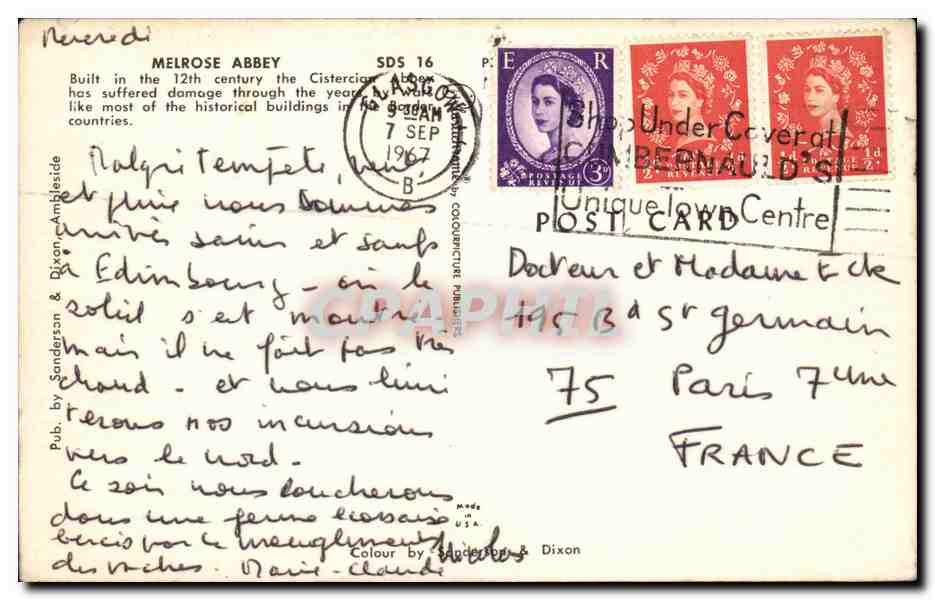 Mercredi
MELROSE ABBEY SDS 16
Built in the 12th century the Cistercian Abbey
has suffered damage through the years by wars
like most of the historical buildings in the Border
countries.
E R
POSTAGE
REVENUE
3D
GLASGOW
9 30 AM
7 SEP
1967
B
Shop Under Cover at
CUMBERNAULD'S
Unique Town Centre
½d
½d
POST CARD
Malgré tempête, vent,
et pluie nous sommes
arrivés sains et saufs
à Edimbourg - où le
soleil s'est montré
mais il ne fait pas très
chaud - et nous limi
terons nos incursions
vers le nord.
Ce soir nous coucherons
dans une ferme écossaise
bercés par le meuglement
des vaches. Marie-Claude
Nicolas
Docteur et Madame
195 Bd St Germain
75 Paris 7ème
FRANCE
Pub. by Sanderson & Dixon, Ambleside
by COLOURPICTURE PUBLISHERS
Made in
U.S.A.
Colour by Sanderson & Dixon
CPAPHIL